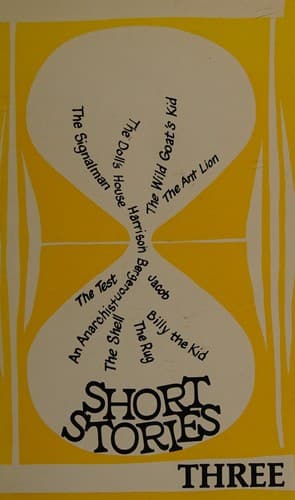 The Signalman
The Doll's House
The Wild Goat's Kid
The Ant Lion
Harrison Bergeron
The Test
An Anarchist
The Shell
The Rug
Jacob
Billy the Kid
SHORT
STORIES
THREE